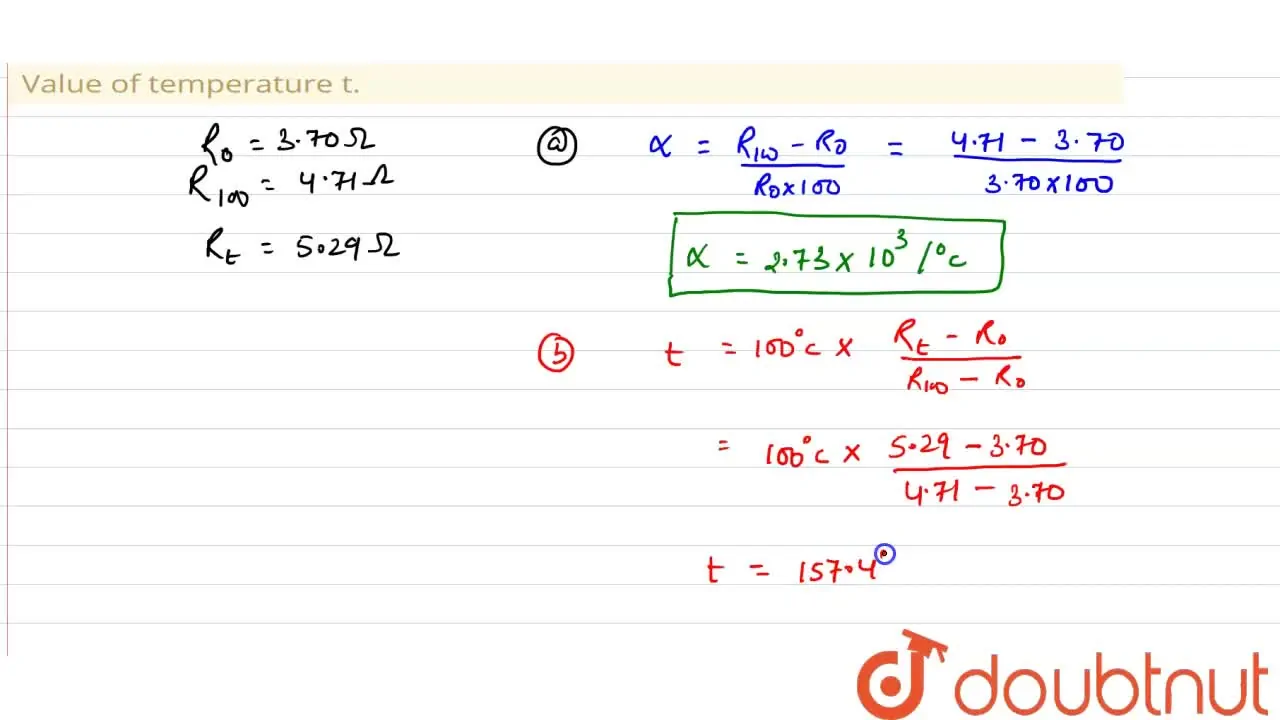 Value of temperature t.
R₀ = 3.70Ω
R₁₀₀ = 4.71Ω
Rₜ = 5.29Ω
ⓐ α = (R₁₀₀ - R₀)/(R₀×100) = (4.71 - 3.70)/(3.70×100)
α = 2.73 × 10³ /°C
ⓑ t = 100°C × (Rₜ - R₀)/(R₁₀₀ - R₀)
= 100°C × (5.29 - 3.70)/(4.71 - 3.70)
t = 157.4°
doubtnut